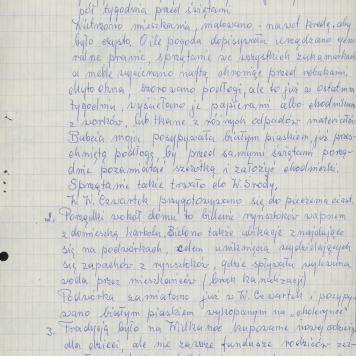 pół tygodnia przed świętami.
Wietrzono mieszkania, malowano - nawet kredą, aby
było czysto. O ile pogoda dopisywała urządzano gene-
ralne pranie, sprzątanie we wszystkich zakamarkach
a meble wycierano naftą, chroniąc przed robakami,
myto okna, szorowano podłogi, ale to już w ostatnim
tygodniu, wyściełano je papierami albo chodnikami
z worków, lub tkane z różnych odpadów materiałów.
Babcia moja posypywała białym piaskiem, już przes-
chniętą podłogę, by przed samymi świętami porzą-
dnie pozamiatać szczotką i założyć chodniczki.
Sprzątanie takie trwało do W. Środy,
W W. Czwartek przygotowywano się do pieczenia ciast.
2. Porządki wokół domu to bielenie rynsztoków wapnem
z domieszką karbolu. Bielono także ubikacje znajdujące
się na podwórkach, celem uniknięcia wydzielających
się zapachów z rynsztoków, gdzie spływała wylewana
woda przez mieszkańców (brak kanalizacji)
Podwórka zamiatano już w W. Czwartek i posypy-
wano białym piaskiem wykopanym na
3. Tradycją było na Wielkanoc kupowanie nowej odzieży
dla dzieci, ale nie zawsze fundusze rodziców zez-